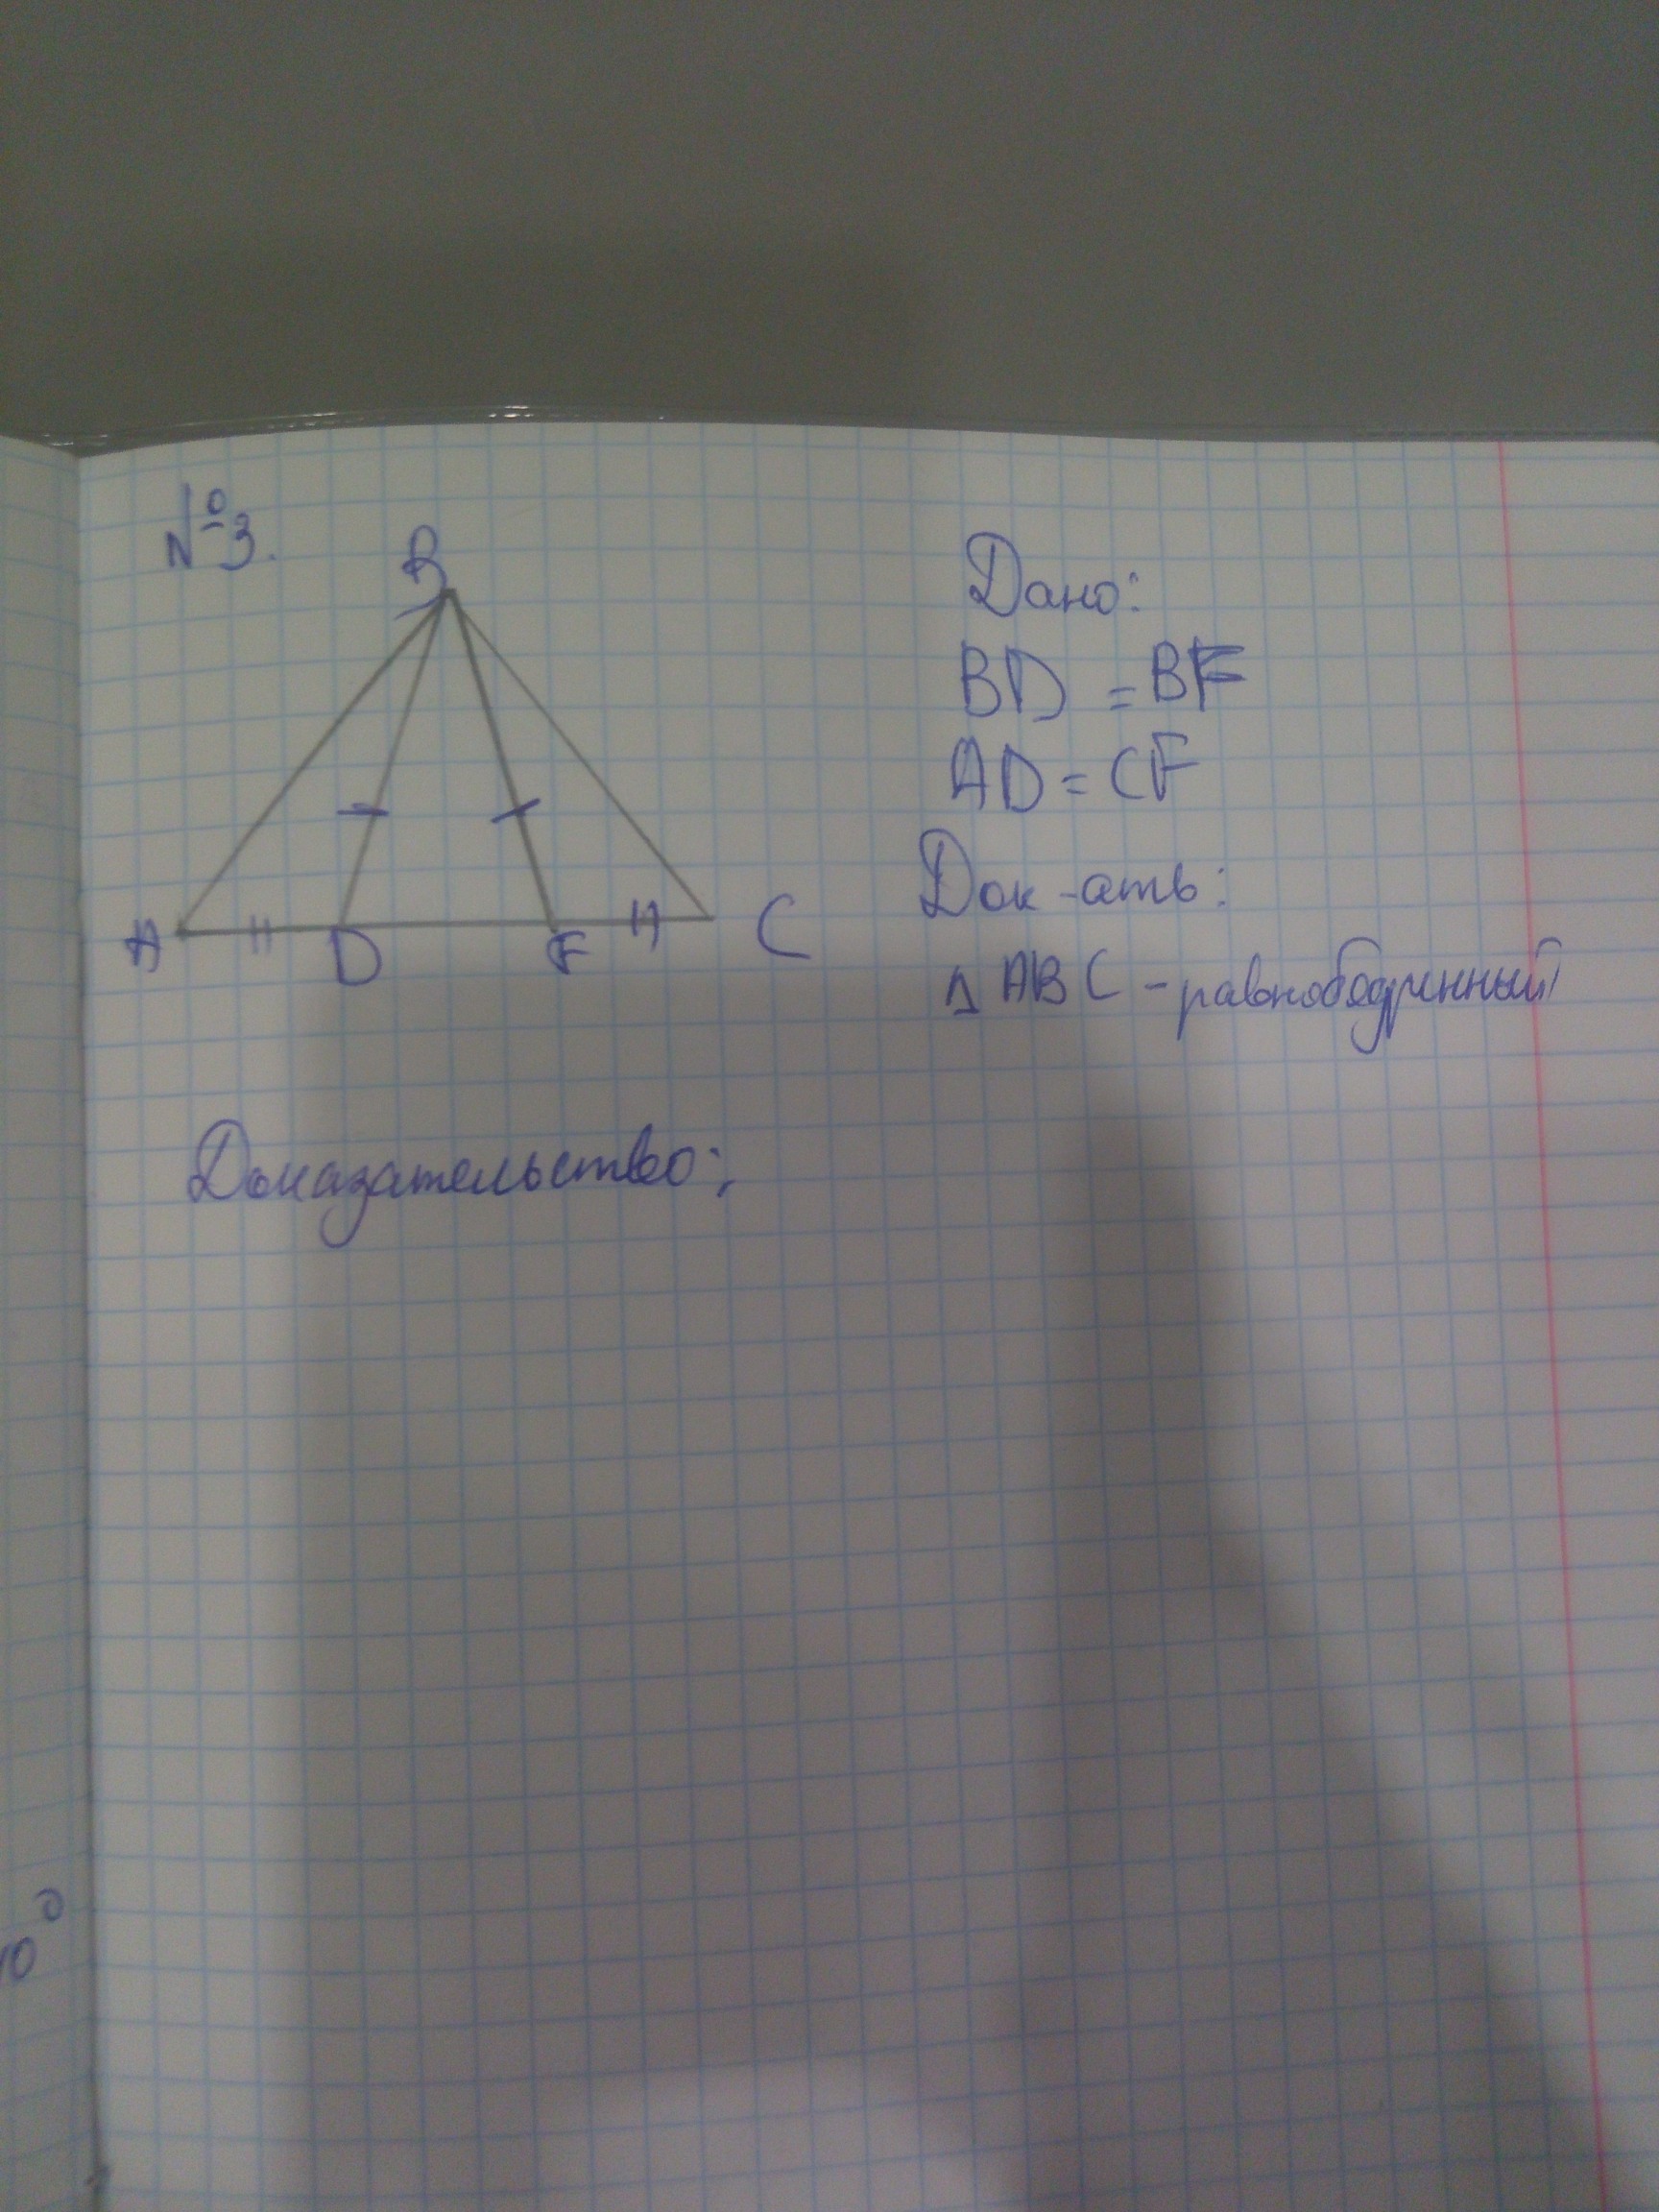 №3.
B
A
D
F
C
Дано:
BD = BF
AD = CF
Док-ать:
△ ABC - равнобедренный
Доказательство: